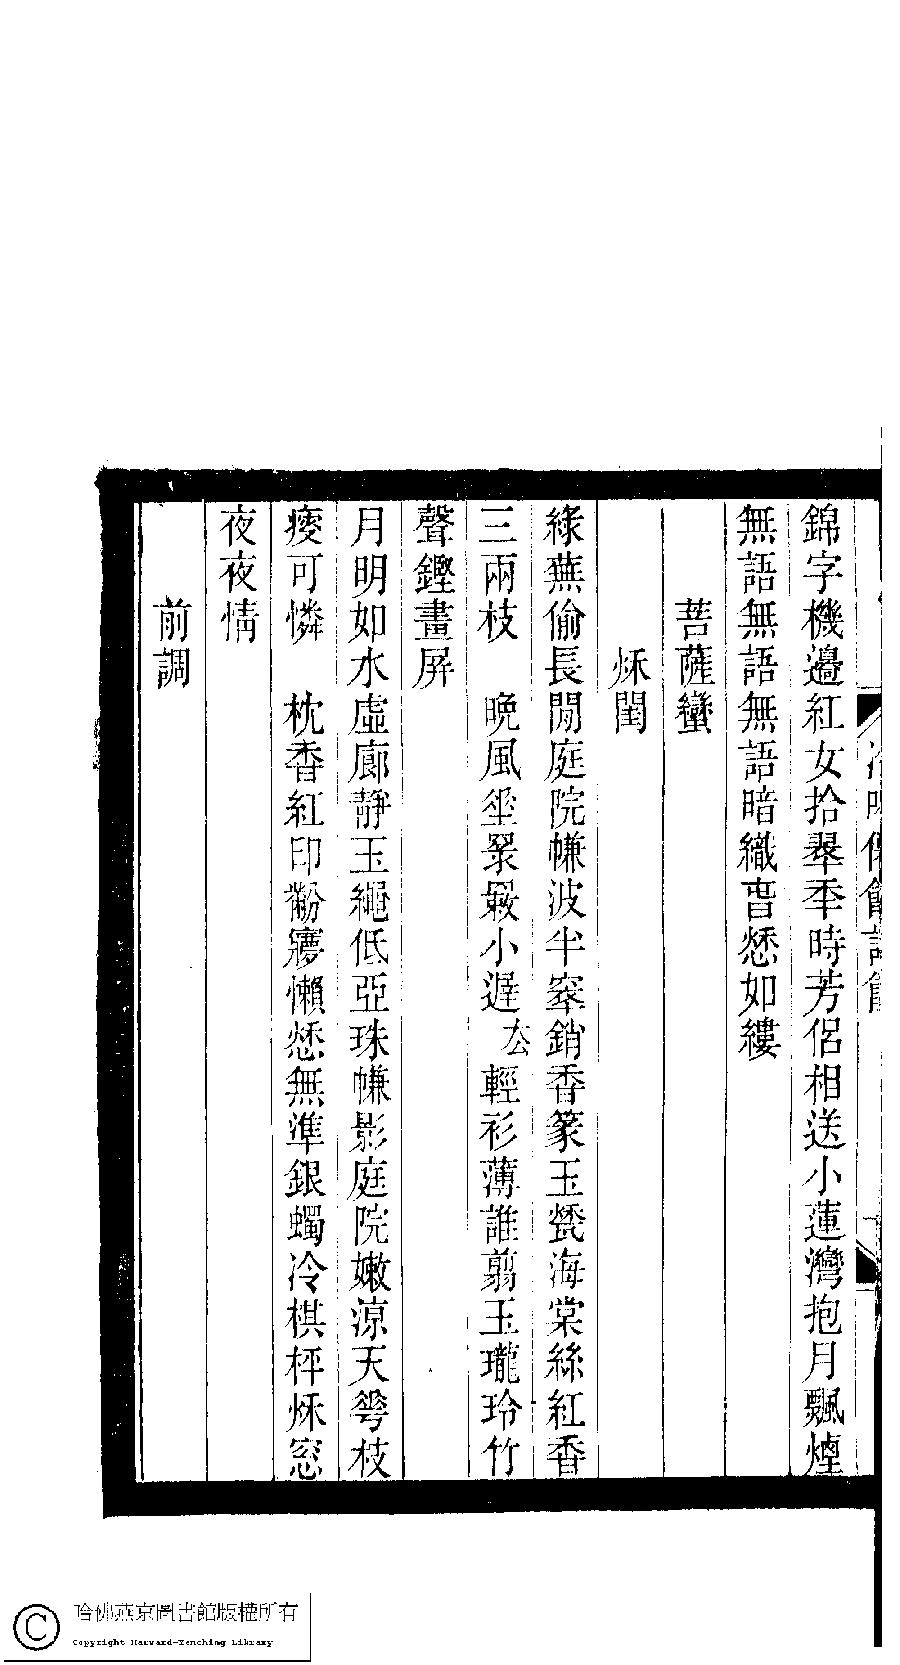 錦字機邊紅女拾翠秊時芳侶相送小蓮灣抱月飄煙
無語無語無語暗織旾愁如縷
菩薩蠻
秌閨
綠蕪偷長閒庭院㡘波半窣銷香篆玉甃海棠絲紅香
三兩枝　晚風坐小遲厺輕衫薄誰翦玉瓏玲竹
聲鏗畫屏
月明如水虛廊靜玉繩低亞珠㡘影庭院嫩涼天枝
瘦可憐　枕香紅印黺㝱懶愁無準銀蠋冷棋枰秌窓
夜夜情
前調
哈佛燕京圖書館版權所有
Copyright Harvard-Yenching Library